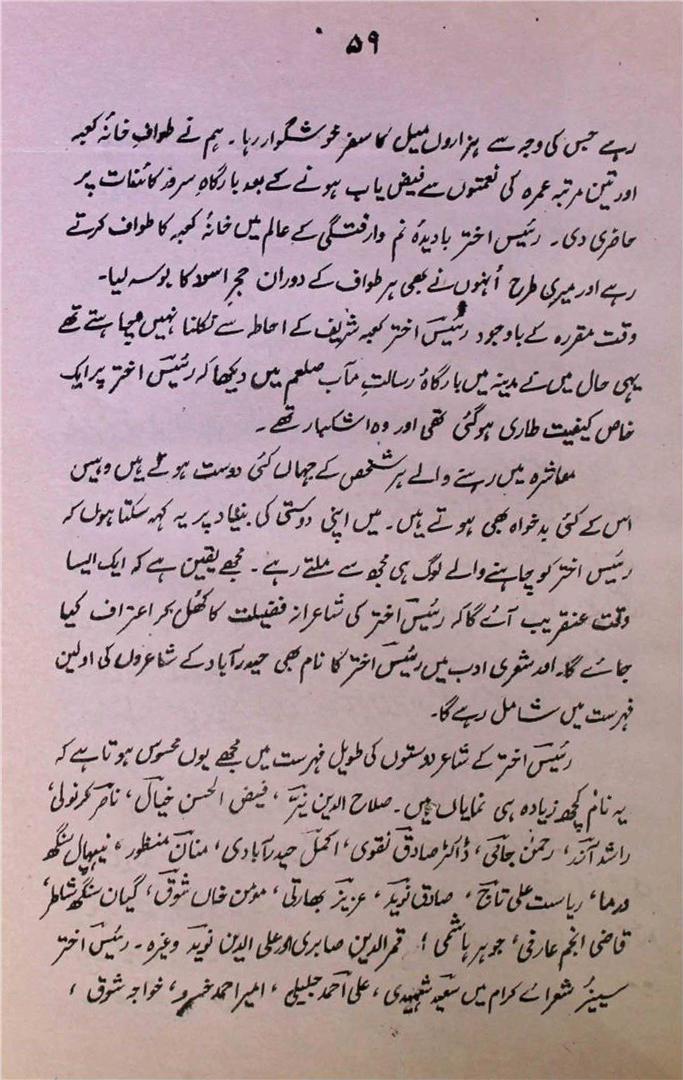 ۵۹
رہے جس کی وجہ سے ہزاروں میل کا سفر خوشگوار رہا۔ ہم نے طوافِ خانۂ کعبہ
اور تین مرتبہ عمرہ کی نعمتوں سے فیض یاب ہونے کے بعد بارگاہِ سرورِ کائنات پر
حاضری دی۔ رئیس اختر بادیدۂ نم وارفتگی کے عالم میں خانۂ کعبہ کا طواف کرتے
رہے اور میری طرح اُنہوں نے بھی ہر طواف کے دوران حجرِ اسود کا بوسہ لیا۔
وقت مقررہ کے باوجود رئیس اختر کعبہ شریف کے احاطہ سے نکلنا نہیں چاہتے تھے
یہی حال میں نے مدینہ میں بارگاۂ رسالتِ مآب صلعم میں دیکھا کہ رئیس اختر پر ایک
خاص کیفیت طاری ہوگئی تھی اور وہ اشکبار تھے۔
معاشرہ میں رہنے والے ہر شخص کے جہاں کئی دوست ہوتے ہیں وہیں
اس کے کئی بدخواہ بھی ہوتے ہیں۔ میں اپنی دوستی کی بنیاد پر یہ کہہ سکتا ہوں کہ
رئیس اختر کو چاہنے والے لوگ ہی مجھ سے ملتے رہے۔ مجھے یقین ہے کہ ایک ایسا
وقت عنقریب آئے گا کہ رئیس اختر کی شاعرانہ فضیلت کا کھُل کر اعتراف کیا
جائے گا۔ اور شعری ادب میں رئیس اختر کا نام بھی حیدرآباد کے شاعروں کی اولین
فہرست میں شامل رہے گا۔
رئیس اختر کے شاعر دوستوں کی طویل فہرست میں مجھے یوں محسوس ہوتا ہے کہ
یہ نام کچھ زیادہ ہی نمایاں ہیں۔ صلاح الدین نیر، فیض الحسن خیال، ناصر کرنولی،
راشد آزر، رحمن جامی، ڈاکٹر صادق نقوی، اکمل حیدرآبادی، منان منظور، نیہپال سنگھ
ورما، ریاست علی تاج، صادق نوید، عزیز بھارتی، مومن خاں شوق، گیان سنگھ شاطر،
قاضی انجم عارفی، جوہر ہاشمی، قمر الدین صابری اور علی الدین نوید وغیرہ۔ رئیس اختر
سینیر شعرائے کرام میں سعید شہیدی، علی احمد جلیلی، امیر احمد خسرو، خواجہ شوق،